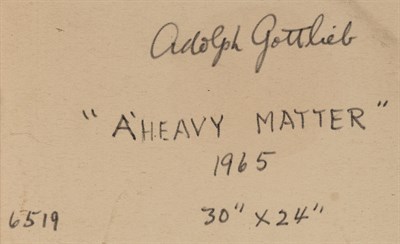 Adolph Gottlieb
"A HEAVY MATTER"
1965
6519 30" X 24"